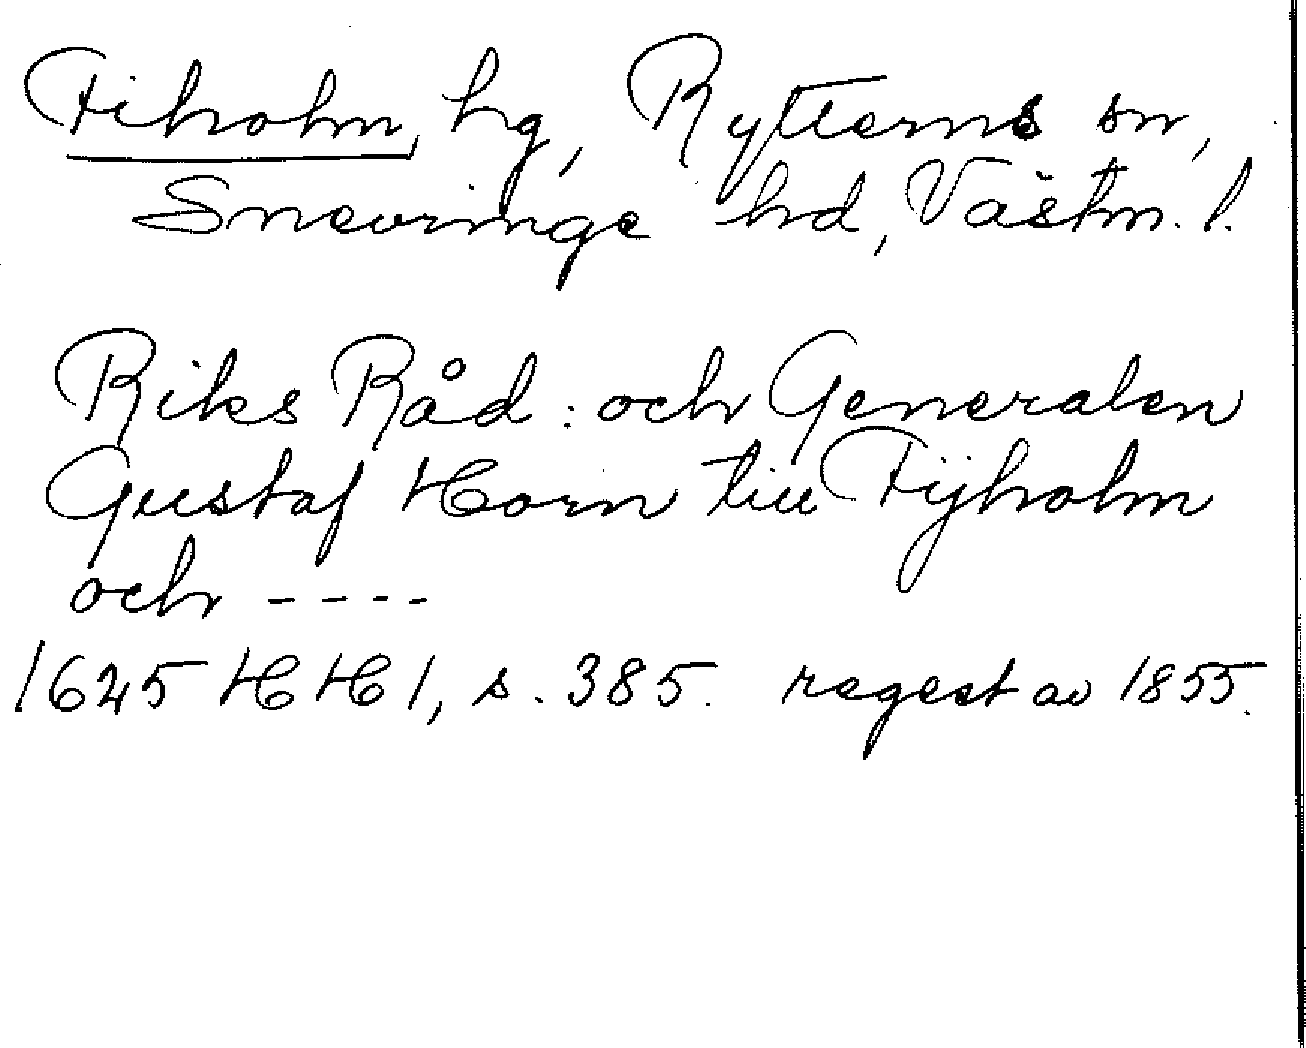 Fiholm, hg, Rytterns sn,
Snevringe hd, Västm. l.
Riks Råd: och Generalen
Gustaf Horn till Fijholm
och ----
1645 HH 1, s. 385. regest av 1855.